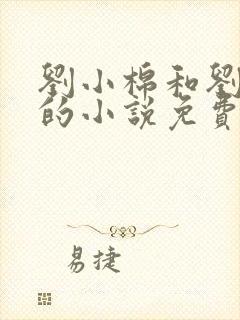 劉小棉和劉
的小說免費
易捷